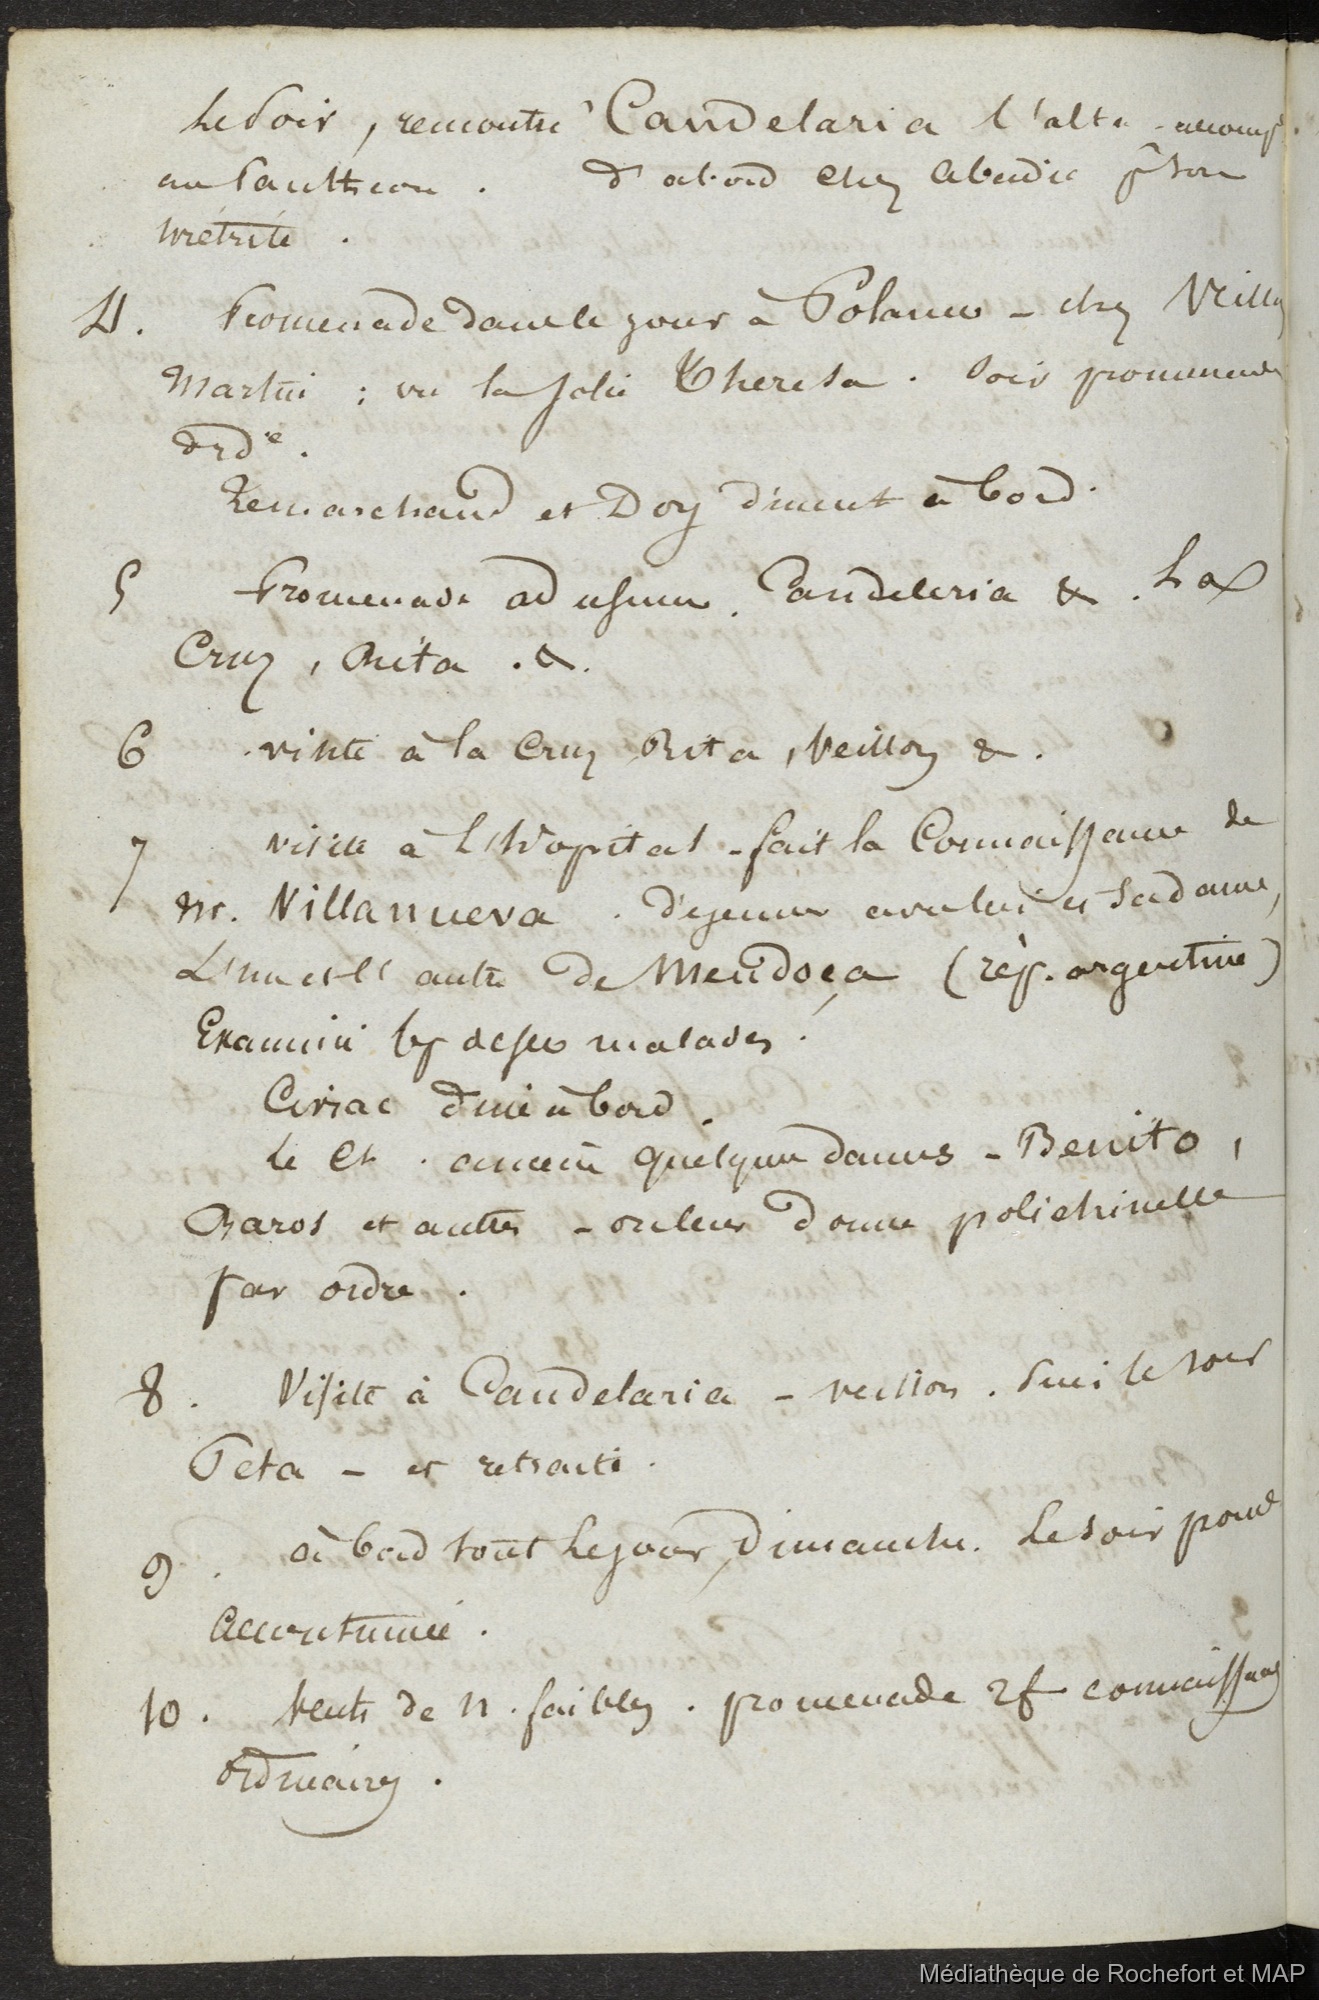 Le soir, rencontré Candelaria l'alta - accomp.
au Panthéon. d'abord chez Abadie pr son
métrite.
4. Promenade dans le jour à Polanco - chez Veillon
Martin ; vu la jolie Theresa. Soir promenade
ordre.
et Doy dinent à bord.
5 Promenade ad usum. Candeleria & . La
Cruz, Rita . &.
6 visite à la Cruz, Rita, Veillon & .
7 visite à l'hôpital - fait la Connaissance de
mr. Villanueva . déjeuner avec lui et sa dame,
L'un et l'autre de Mendoça (rép. argentine)
Examiné bp de ses malades.
Ciriac diné à bord.
Le Ct. amène quelques dames - Benito,
Baros et autres - on leur donne polichinelle
par ordre.
8. Visite à Candelaria - veillon. Suivi le soir
Peta - et retraite.
9. à bord tout le jour, Dimanche. Le soir promde
Accoutumée.
10. Vents de N. faibles. promenade & connaissances
ordinaires.
Médiathèque de Rochefort et MAP